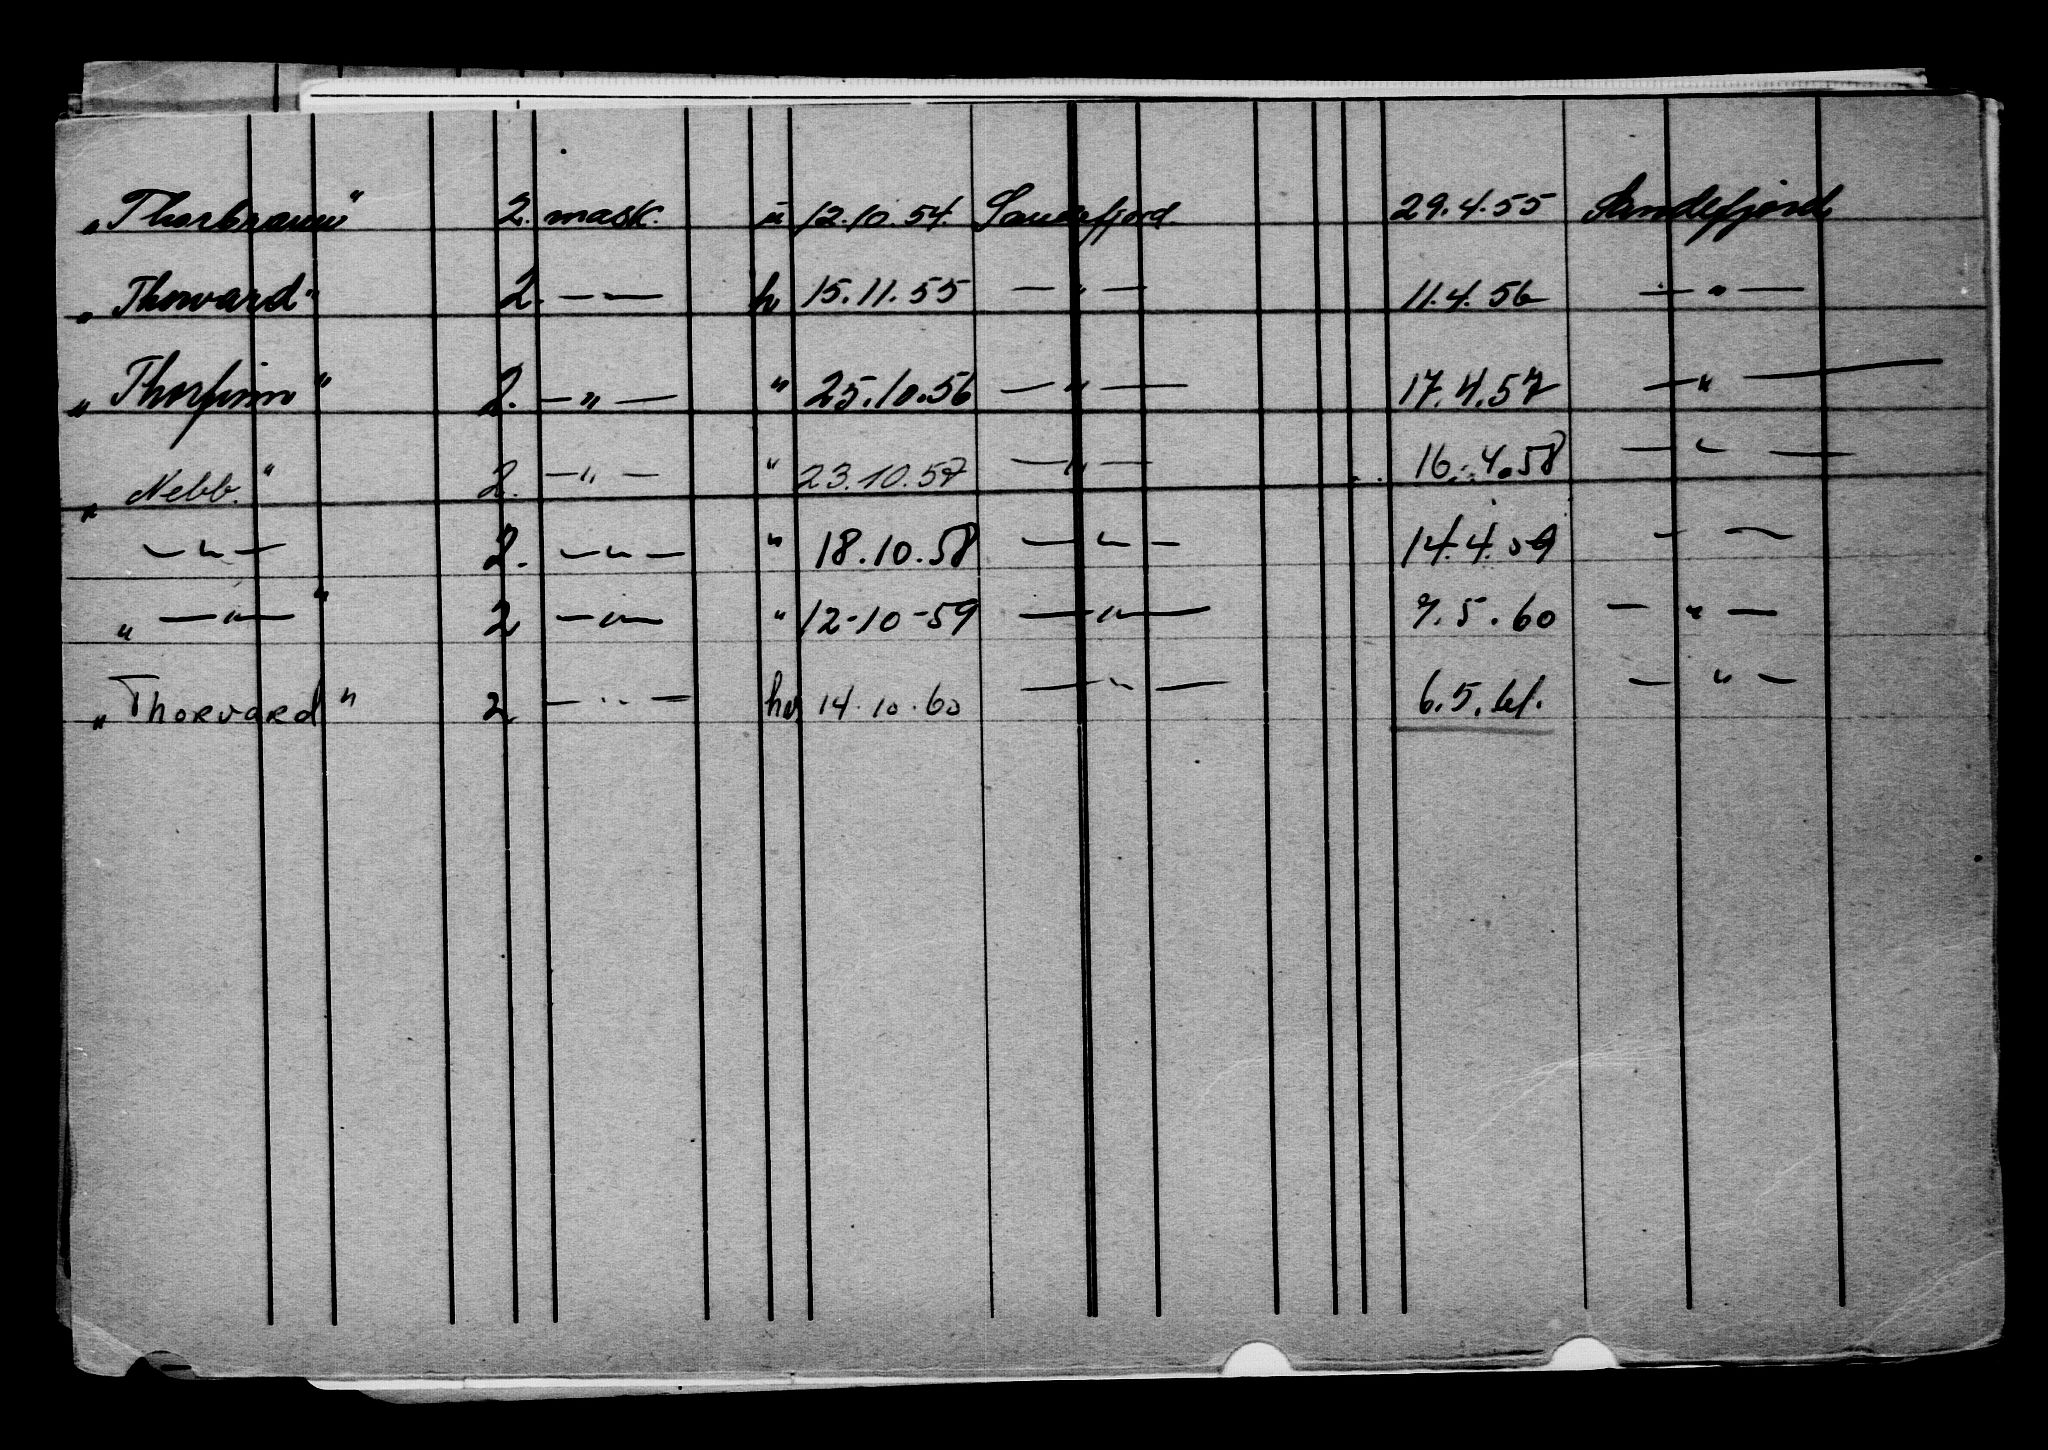 „Thorbrann" 2. mask. u 12.10.54. Sandefjord. 29.4.55 Sandefjord.
„Thorvard" 2. — — h 15.11.55 — " — 11.4.56 — " —
„Thorfinn" 2. — " — " 25.10.56 — " — 17.4.57 — " —
„Nebb." 2. — " — " 23.10.57 — " — 16.4.58 — " —
— " — 2. — " — " 18.10.58 — " — 14.4.59 — —
„ — " — " 2 — " — " 12-10-59 — " — 7.5.60 — " —
„Thorvard" 2 — " — hv 14.10.60 — " — 6.5.61. — " —